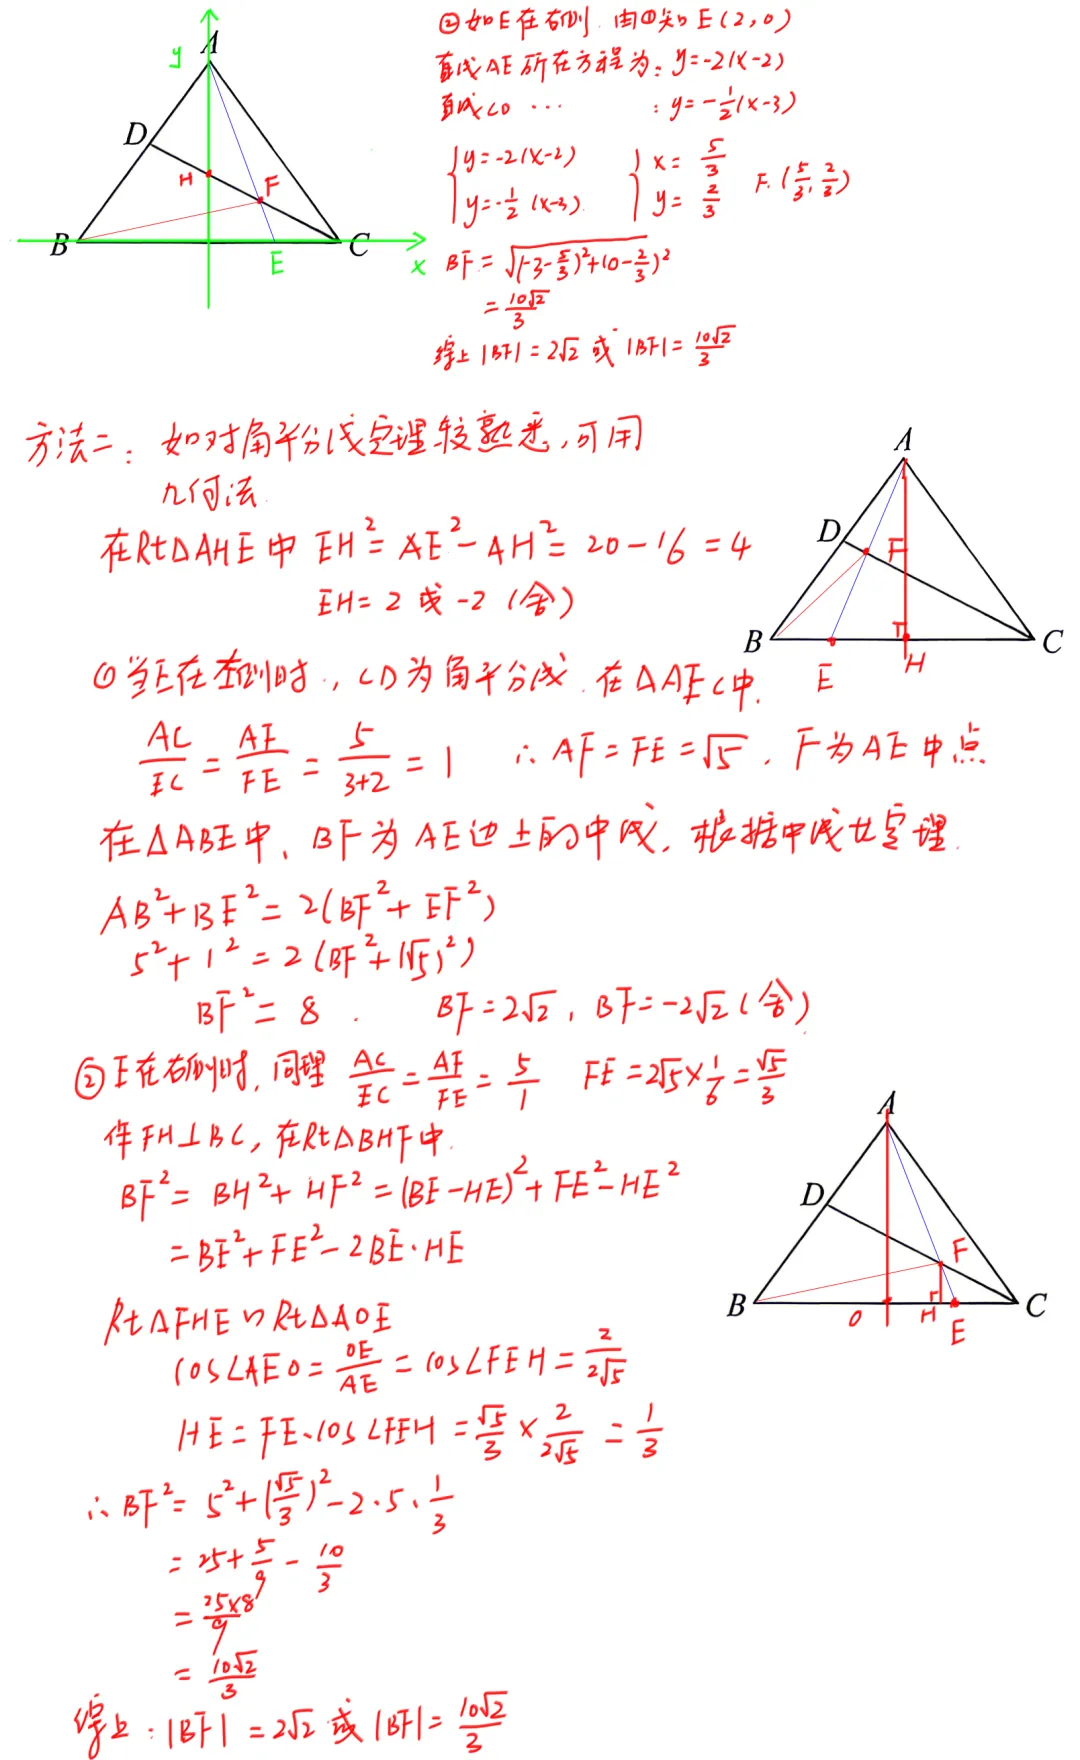 ②如E在右侧. 由①知 E(2,0)
直线AE所在方程为: y=-2(x-2)
直线CD … : y=-1/2(x-3)
{y=-2(x-2) {x=5/3 F.(5/3, 2/3)
{y=-1/2(x-3). {y=2/3
BF=√(-3-5/3)²+(0-2/3)²
=10√2/3
综上|BF|=2√2 或 |BF|=10√2/3
A
y
D
H
F
B
E
C
x
方法二: 如对角平分线定理较熟悉,可用
几何法.
在Rt△AHE中 EH²=AE²-AH²=20-16=4
EH=2或-2(舍)
A
D
F
B
E
H
C
①当E在左侧时., CD为角平分线. 在△AEC中.
AC/EC=AF/FE=5/(3+2)=1 ∴AF=FE=√5. F为AE中点
在△ABE中、BF为AE边上的中线, 根据中线长定理.
AB²+BE²=2(BF²+EF²)
5²+1²=2(BF²+(√5)²)
BF²=8. BF=2√2, BF=-2√2(舍)
②E在右侧时, 同理 AC/EC=AF/FE=5/1 FE=2√5×1/6=√5/3
作FH⊥BC, 在Rt△BHF中.
BF²=BH²+HF²=(BE-HE)²+FE²-HE²
=BE²+FE²-2BE·HE
A
D
F
B
O
H
E
C
Rt△FHE∽Rt△AOE
cos∠AEO=OE/AE=cos∠FEH=2/2√5
HE=FE·cos∠FEH=√5/3×2/2√5=1/3
∴BF²=5²+(√5/3)²-2·5·1/3
=25+5/9-10/3
=25×8/9
=10√2/3
综上: |BF|=2√2 或 |BF|=10√2/3